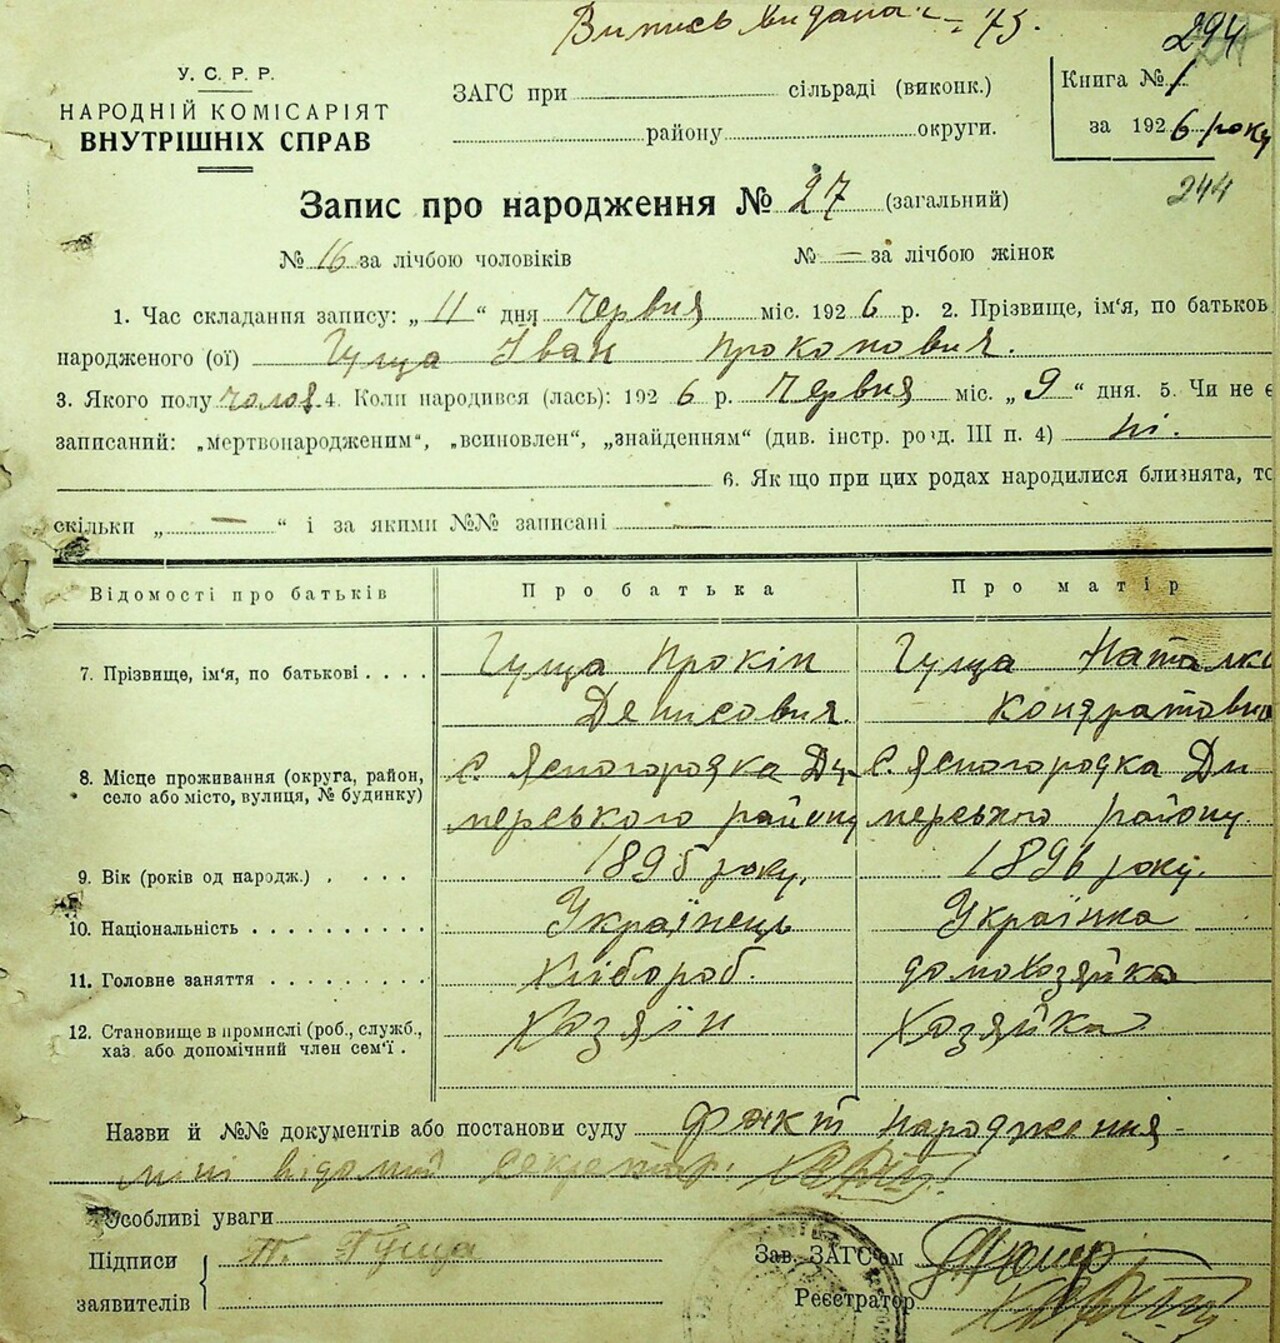 Випись видана
294
У. С. Р. Р.
НАРОДНІЙ КОМІСАРІЯТ
ВНУТРІШНІХ СПРАВ
ЗАГС при сільраді (виконк.)
району округи.
Книга № 1
за 1926 року
244
Запис про народження № 27 (загальний)
№ 16 за лічбою чоловіків № — за лічбою жінок
1. Час складання запису: „11“ дня Червня міс. 1926 р. 2. Прізвище, ім‘я, по батьков
народженого (ої) Гуща Іван Прокопович.
3. Якого полу чолов. 4. Коли народився (лась): 1926 р. Червня міс. „9“ дня. 5. Чи не є
записаний: „мертвонародженим“, „всиновлен“, „знайденням“ (див. інстр. розд. III п. 4) ні.
6. Якщо при цих родах народилися близнята, то
скільки „—“ і за якими №№ записані —
Відомості про батьків Про батька Про матір
7. Прізвище, ім‘я, по батькові . . . . Гуща Прокіп Гуща Наталка
Денисович. Кондратовна
8. Місце проживання (округа, район, с. Ясногородка Ди- с. Ясногородка Ди
село або місто, вулиця, № будинку) мерського району мерського району.
9. Вік (років од народж.) . . . . 1895 року. 1896 року.
10. Національність . . . . . . . . . . Українець Українка
11. Головне заняття . . . . . . . . . Хлібороб. домохозяйка
12. Становище в промислі (роб., служб., Хозяїн Хозяйка
хаз. або допомічний член сем‘ї .
Назви й №№ документів або постанови суду факт народження
мені відомий секретар.
Особливі уваги
Підписи П. Гуща
заявителів
Зав. ЗАГС‘ом
Реєстратор